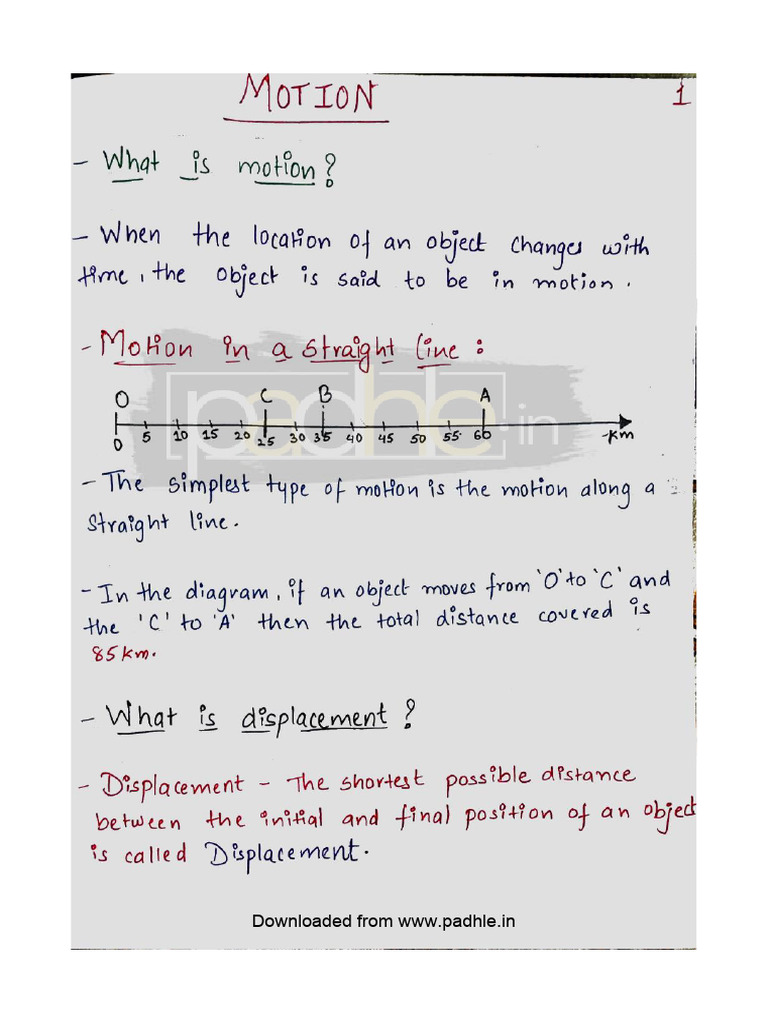 MOTION 1
- What is motion?
- When the location of an object changes with
time, the object is said to be in motion.
- Motion in a straight line:
O C B A
0 5 10 15 20 25 30 35 40 45 50 55 60 km
padhle.in
- The simplest type of motion is the motion along a
straight line.
- In the diagram, if an object moves from 'O' to 'C' and
the 'C' to 'A' then the total distance covered is
85km.
- What is displacement?
- Displacement - The shortest possible distance
between the initial and final position of an object
is called Displacement.
Downloaded from www.padhle.in